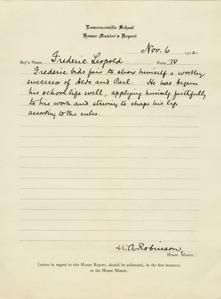 Lawrenceville School
House Master's Report
Nov. 6 1912
Boy's Name, Frederic Leopold Form, IV
Frederic bids fair to show himself a worthy
successor of Aldo and Carl. He has begun
his school life well, applying himself faithfully
to his work and striving to shape his life
according to the rules.
W. A. Robinson,
House Master.
Letters in regard to this House Report, should be addressed, in the first instance,
to the House Master.